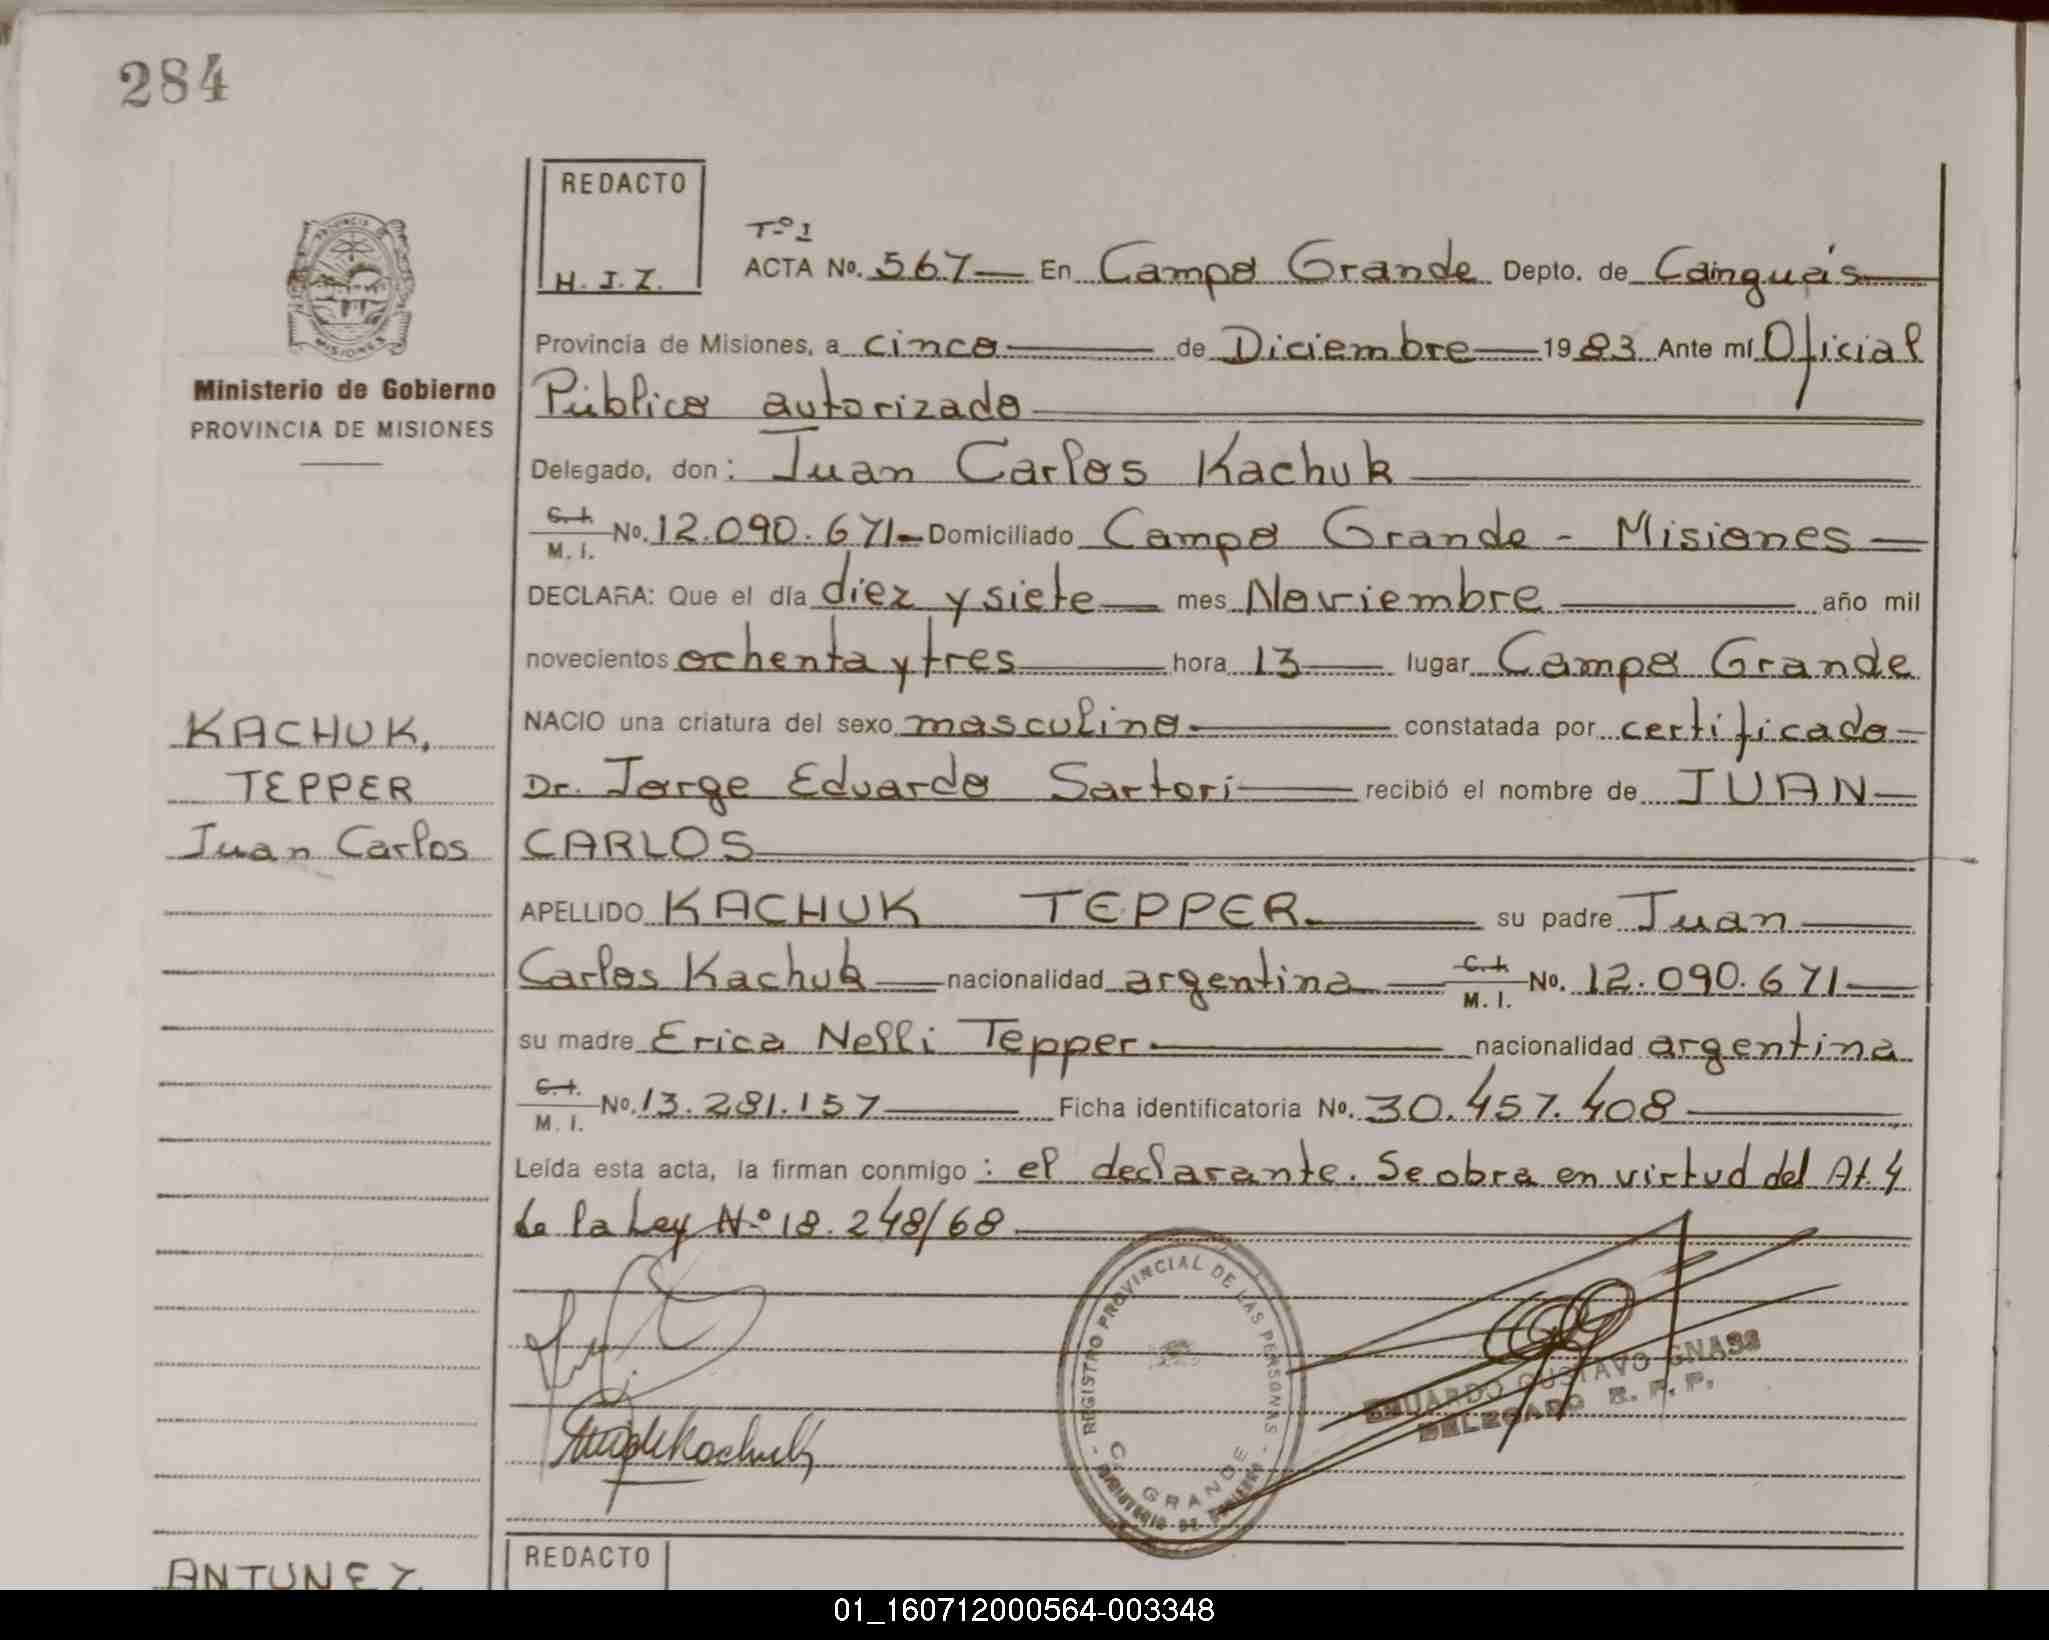 284
REDACTO
H. J. Z.
Tº 1
ACTA No. 567 En Campo Grande Depto. de Cainguás
Provincia de Misiones, a cinco de Diciembre 1983 Ante mí Oficial
Público autorizado
Delegado, don: Juan Carlos Kachuk
C.I. M. I. No. 12.090.671 Domiciliado Campo Grande - Misiones
DECLARA: Que el día diez y siete mes Noviembre año mil
novecientos ochenta y tres hora 13 lugar Campo Grande
NACIO una criatura del sexo masculino constatada por certificado
Dr. Jorge Eduardo Sartori recibió el nombre de JUAN
CARLOS
APELLIDO KACHUK TEPPER su padre Juan
Carlos Kachuk nacionalidad argentina C.I. M. I. No. 12.090.671
su madre Erica Nelli Tepper nacionalidad argentina
C.I. M. I. No. 13.281.157 Ficha identificatoria No. 30.457.408
Leída esta acta, la firman conmigo: el declarante. Se obra en virtud del At. 4
de la Ley Nº 18.248/68
Ministerio de Gobierno
PROVINCIA DE MISIONES
KACHUK,
TEPPER
Juan Carlos
PROVINCIA DE
MISIONES
- REGISTRO PROVINCIAL DE LAS PERSONAS -
C. GRANDE
MINISTERIO DE GOBIERNO
EDUARDO GUSTAVO GNASS
DELEGADO R. P. P.
REDACTO
ANTUNEZ
01_160712000564-003348